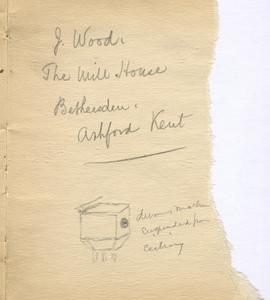 J. Wood.
The Mill House
Bethersden.
Ashford Kent
suspended from